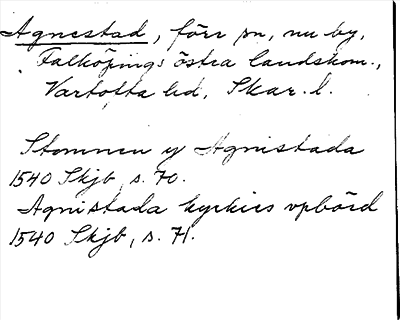 Agnestad, förr sn, nu by,
Falköpings östra landskom.,
Vartofta hd, Skar. l.
Stommen y Agnistada
1540 Skjb, s. 70.
Agnistada kyrkies vpbörd
1540 Skjb, s. 71.